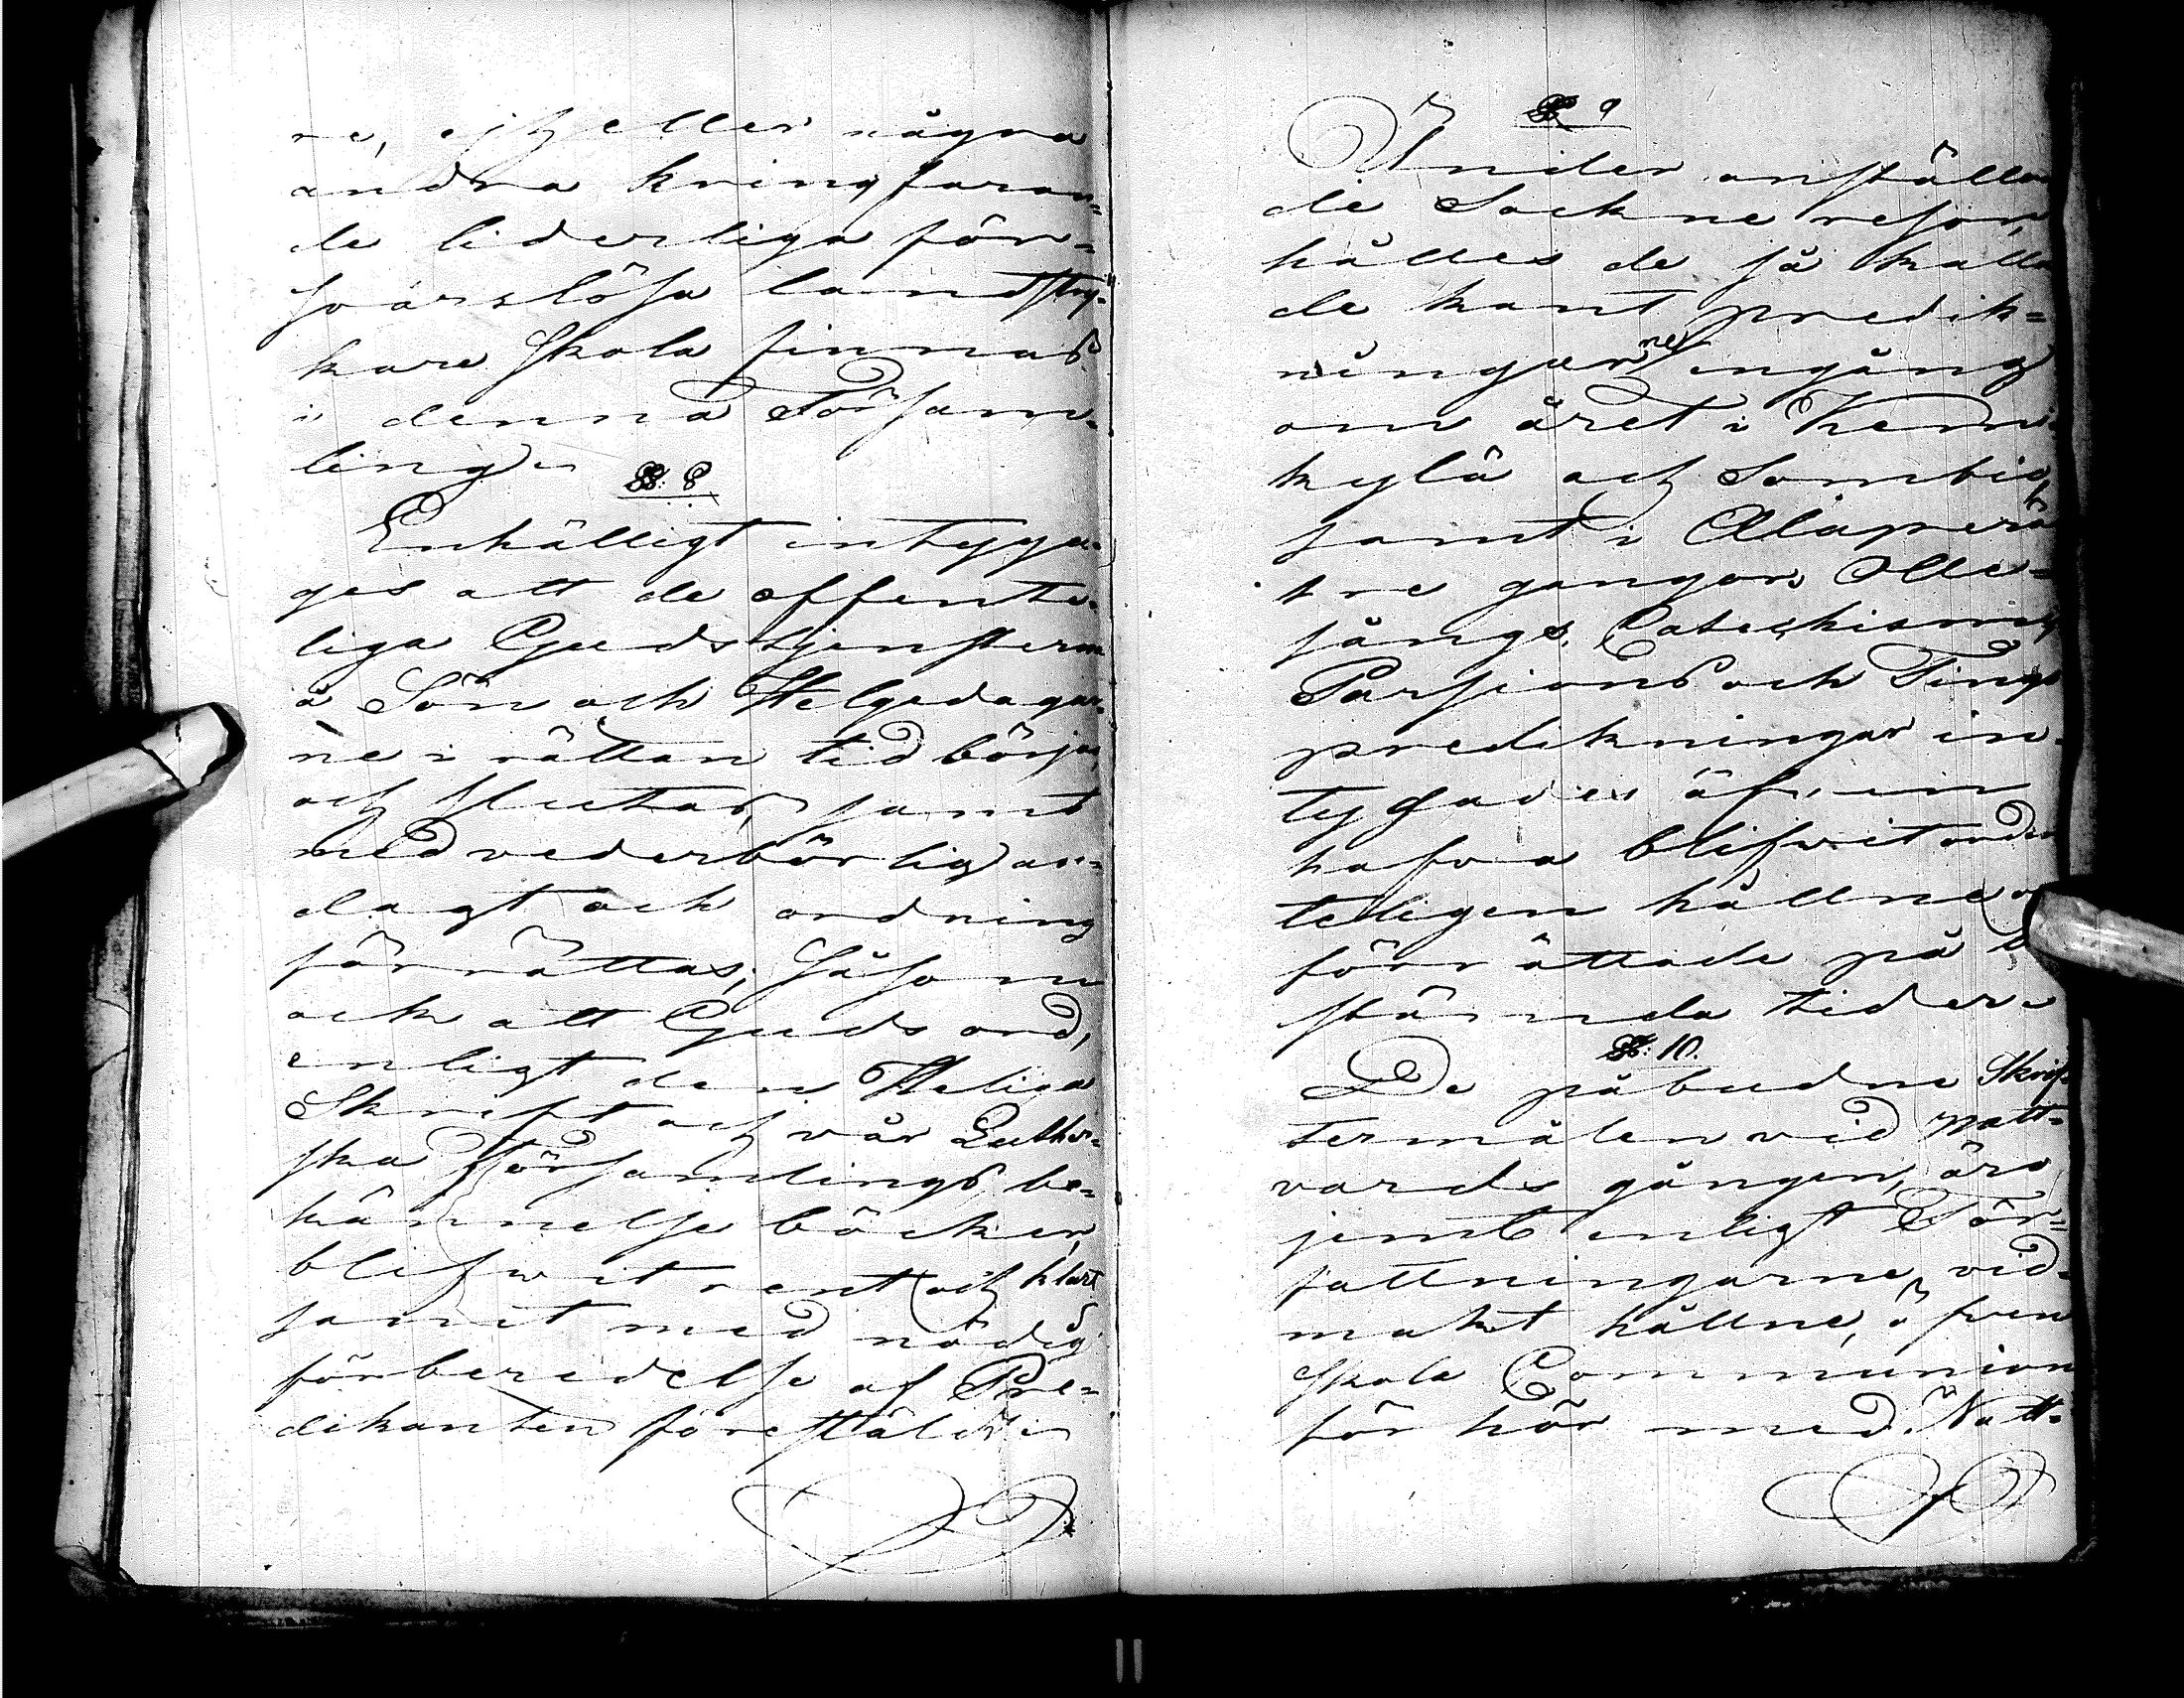 re, ejheller några
andra kringfaran=
de liderliga för=
svarslösa landstry=
kare skola finnas
i denna Församm=
ling.
§. 8.
Enhälligt intyga=
ges att de offente=
liga Gudstjensterne
å Sön och Helgedagar=
ne i rättan tid börjas
och slutas, samt
med vederbörlig an=
dagt och ordning
förrättas; Såsom
ock att Guds ord,
enligt den Heliga
Skrift och vår Luther=
ska Församlings be=
kännelse böcker,
blifwit rent och klart
samt med nödig
förberedelse af Pre=
dikanten föreställdt
§ 9
Under anställan
de Sockne resor,
hålles de så kalla
de kant predik=
ningarne engång
om året i Kemi=
kylä och Sombio,
samt i Alaperä
tre gangor. Otte=
sångs, Catechismi,
Passions och Tings
predikningar in=
tygades äfven
hafva blifwit orden
teligen hållne
förrättade på
stämda tider
§. 10.
De påbudne Skrif=
termålen vid Natt=
vards gången, äro
jemt enligt För=
fattningarne vid=
makt hållne, äfven
skola Communion
förhör med Natt=
11